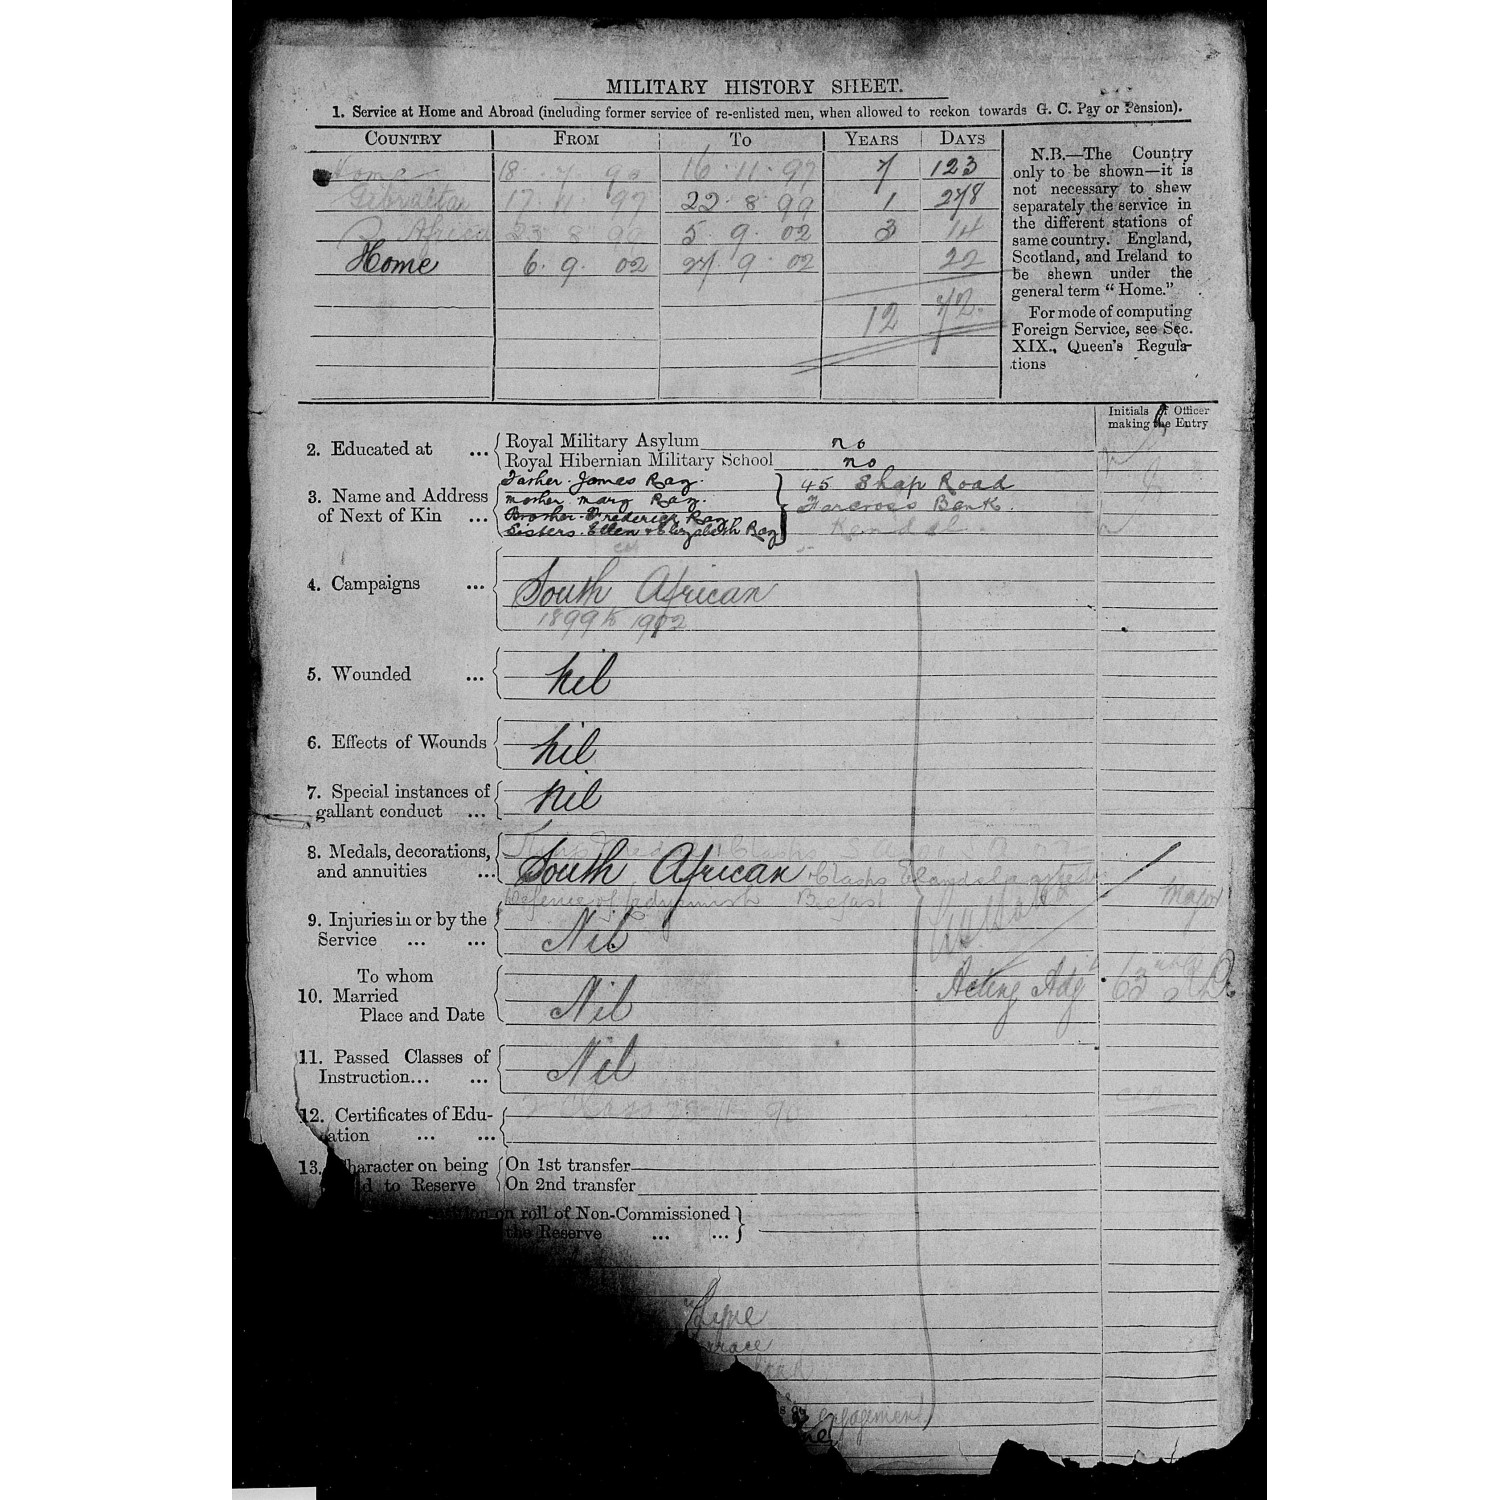 MILITARY HISTORY SHEET.
1. Service at Home and Abroad (including former service of re-enlisted men, when allowed to reckon towards G. C. Pay or Pension).
COUNTRY FROM TO YEARS DAYS
Home 18 . 7 . 90 16 . 11 . 97 7 123
Gibralta 17 . 11 . 97 22 . 8 . 99 1 278
S. Africa 23 8 99 5 . 9 . 02 3 14
Home 6 . 9 . 02 27 . 9 . 02 22
12 72
N.B.—The Country
only to be shown—it is
not necessary to shew
separately the service in
the different stations of
same country. England,
Scotland, and Ireland to
be shewn under the
general term “ Home.”
For mode of computing
Foreign Service, see Sec.
XIX., Queen's Regula-
tions
Initials of Officer
making the Entry
2. Educated at ... Royal Military Asylum no
Royal Hibernian Military School no
3. Name and Address
of Next of Kin ...
Father. James Ray.
Mother. Mary Ray.
Brother. Frederick Ray
Sisters. Ellen & Elizabeth Ray
45 Shap Road
Farcross Bank.
Kendal.
4. Campaigns ... South African
1899 to 1902
5. Wounded ... Nil
6. Effects of Wounds Nil
7. Special instances of
gallant conduct ... Nil
8. Medals, decorations,
and annuities ... South African Clasps Elandslaagte
Defence of Ladysmith Belfast
9. Injuries in or by the
Service ... ... Nil
Major
To whom
10. Married
Place and Date Nil
Acting Adjt
11. Passed Classes of
Instruction... ... Nil
12. Certificates of Edu-
ation ... ... Class 90
13. Character on being
d to Reserve On 1st transfer
On 2nd transfer
on roll of Non-Commissioned
the Reserve ... ...
engagement